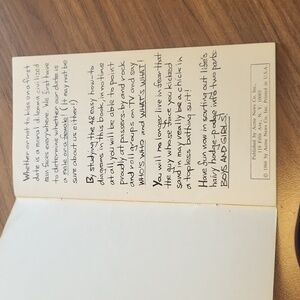 Whether or not to kiss on a first
date is a moral dilemma civilized
man faces everywhere. We first have
to determine whether our date is
a male or a female! (It may not be
sure about us either!)
By studying the 42 easy how-to
diagrams in this book, in no time
at all you will be able to point
proudly at passers-by and rock
and roll groups on TV and say
WHO'S WHO and WHAT'S WHAT!
You will no longer live in fear that
the guy whose face you kicked
sand in may really be a chick in
a topless bathing suit!!
Have fun now in sorting out life's
hairy hodge-podge into two parts:
BOYS AND GIRLS!
Published by Acme News Co., Inc.
Inc. Printed in U.S.A.